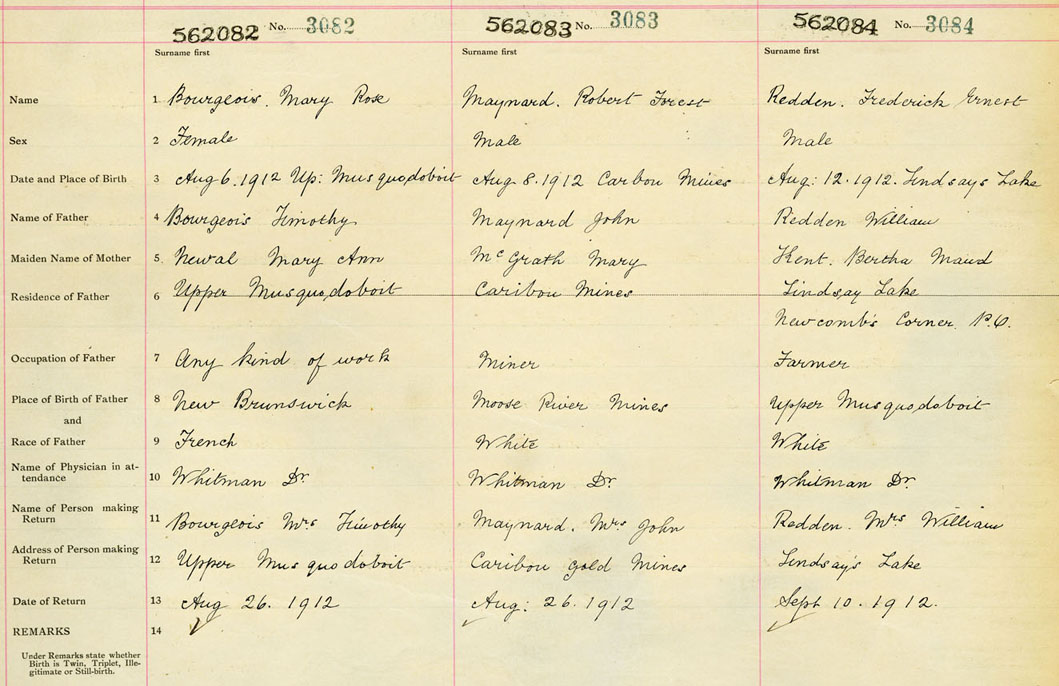 562082 No. 3082 562083 No. 3083 562084 No. 3084
Surname first Surname first Surname first
Name 1 Bourgeois. Mary Rose Maynard. Robert Forest Redden. Frederick Ernest
Sex 2 Female Male Male
Date and Place of Birth 3 Aug 6. 1912 Up: Musquodoboit Aug 8. 1912 Caribou Mines Aug: 12. 1912. Lindsays Lake
Name of Father 4 Bourgeois Timothy Maynard John Redden William
Maiden Name of Mother 5 Newal Mary Ann McGrath Mary Kent. Bertha Maud
Residence of Father 6 Upper Musquodoboit Caribou Mines Lindsay Lake
Newcomb's Corner P.O.
Occupation of Father 7 Any kind of work Miner Farmer
Place of Birth of Father 8 New Brunswick Moose River Mines Upper Musquodoboit
and
Race of Father 9 French White White
Name of Physician in at-
tendance 10 Whitman Dr. Whitman Dr. Whitman Dr.
Name of Person making
Return 11 Bourgeois Mrs Timothy Maynard. Mrs John Redden. Mrs William
Address of Person making
Return 12 Upper Musquodoboit Caribou Gold Mines Lindsay's Lake
Date of Return 13 Aug 26. 1912 Aug: 26. 1912 Sept 10. 1912.
REMARKS 14
Under Remarks state whether
Birth is Twin, Triplet, Ille-
gitimate or Still-birth.